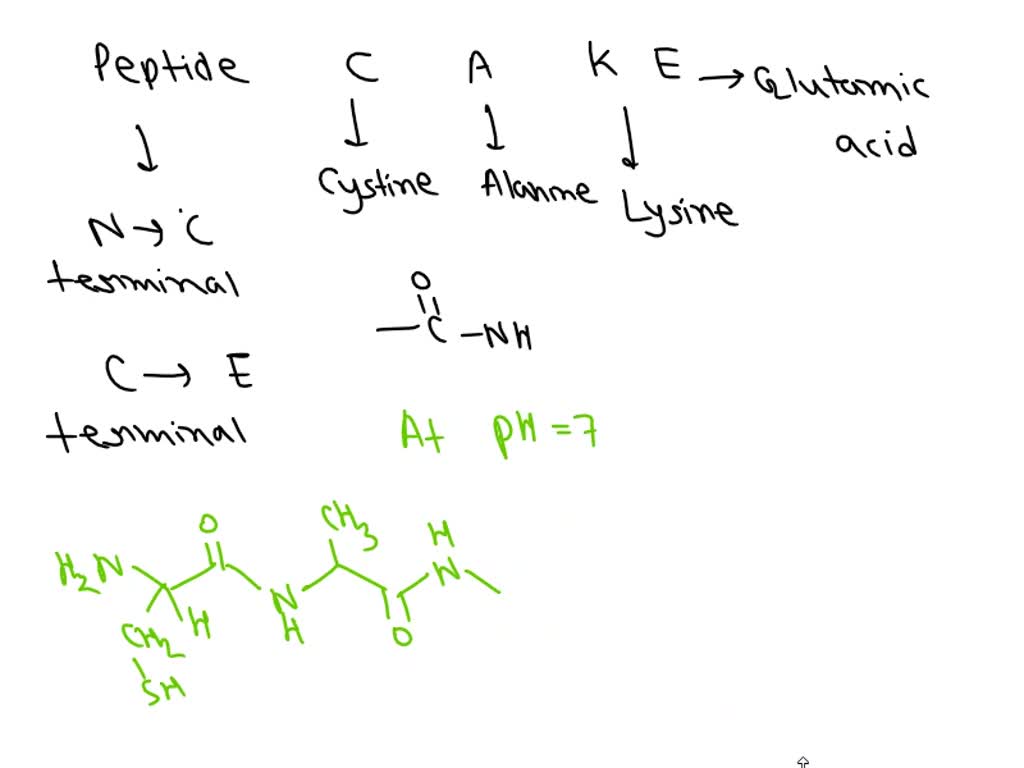 Peptide C A K E → Glutamic acid
↓ ↓ ↓ ↓
Cystine Alanine Lysine
N → C
terminal
O
– C – NH
C → E
terminal
At pH = 7
O CH3 H
H2N N
N
H H
CH2 O
SH